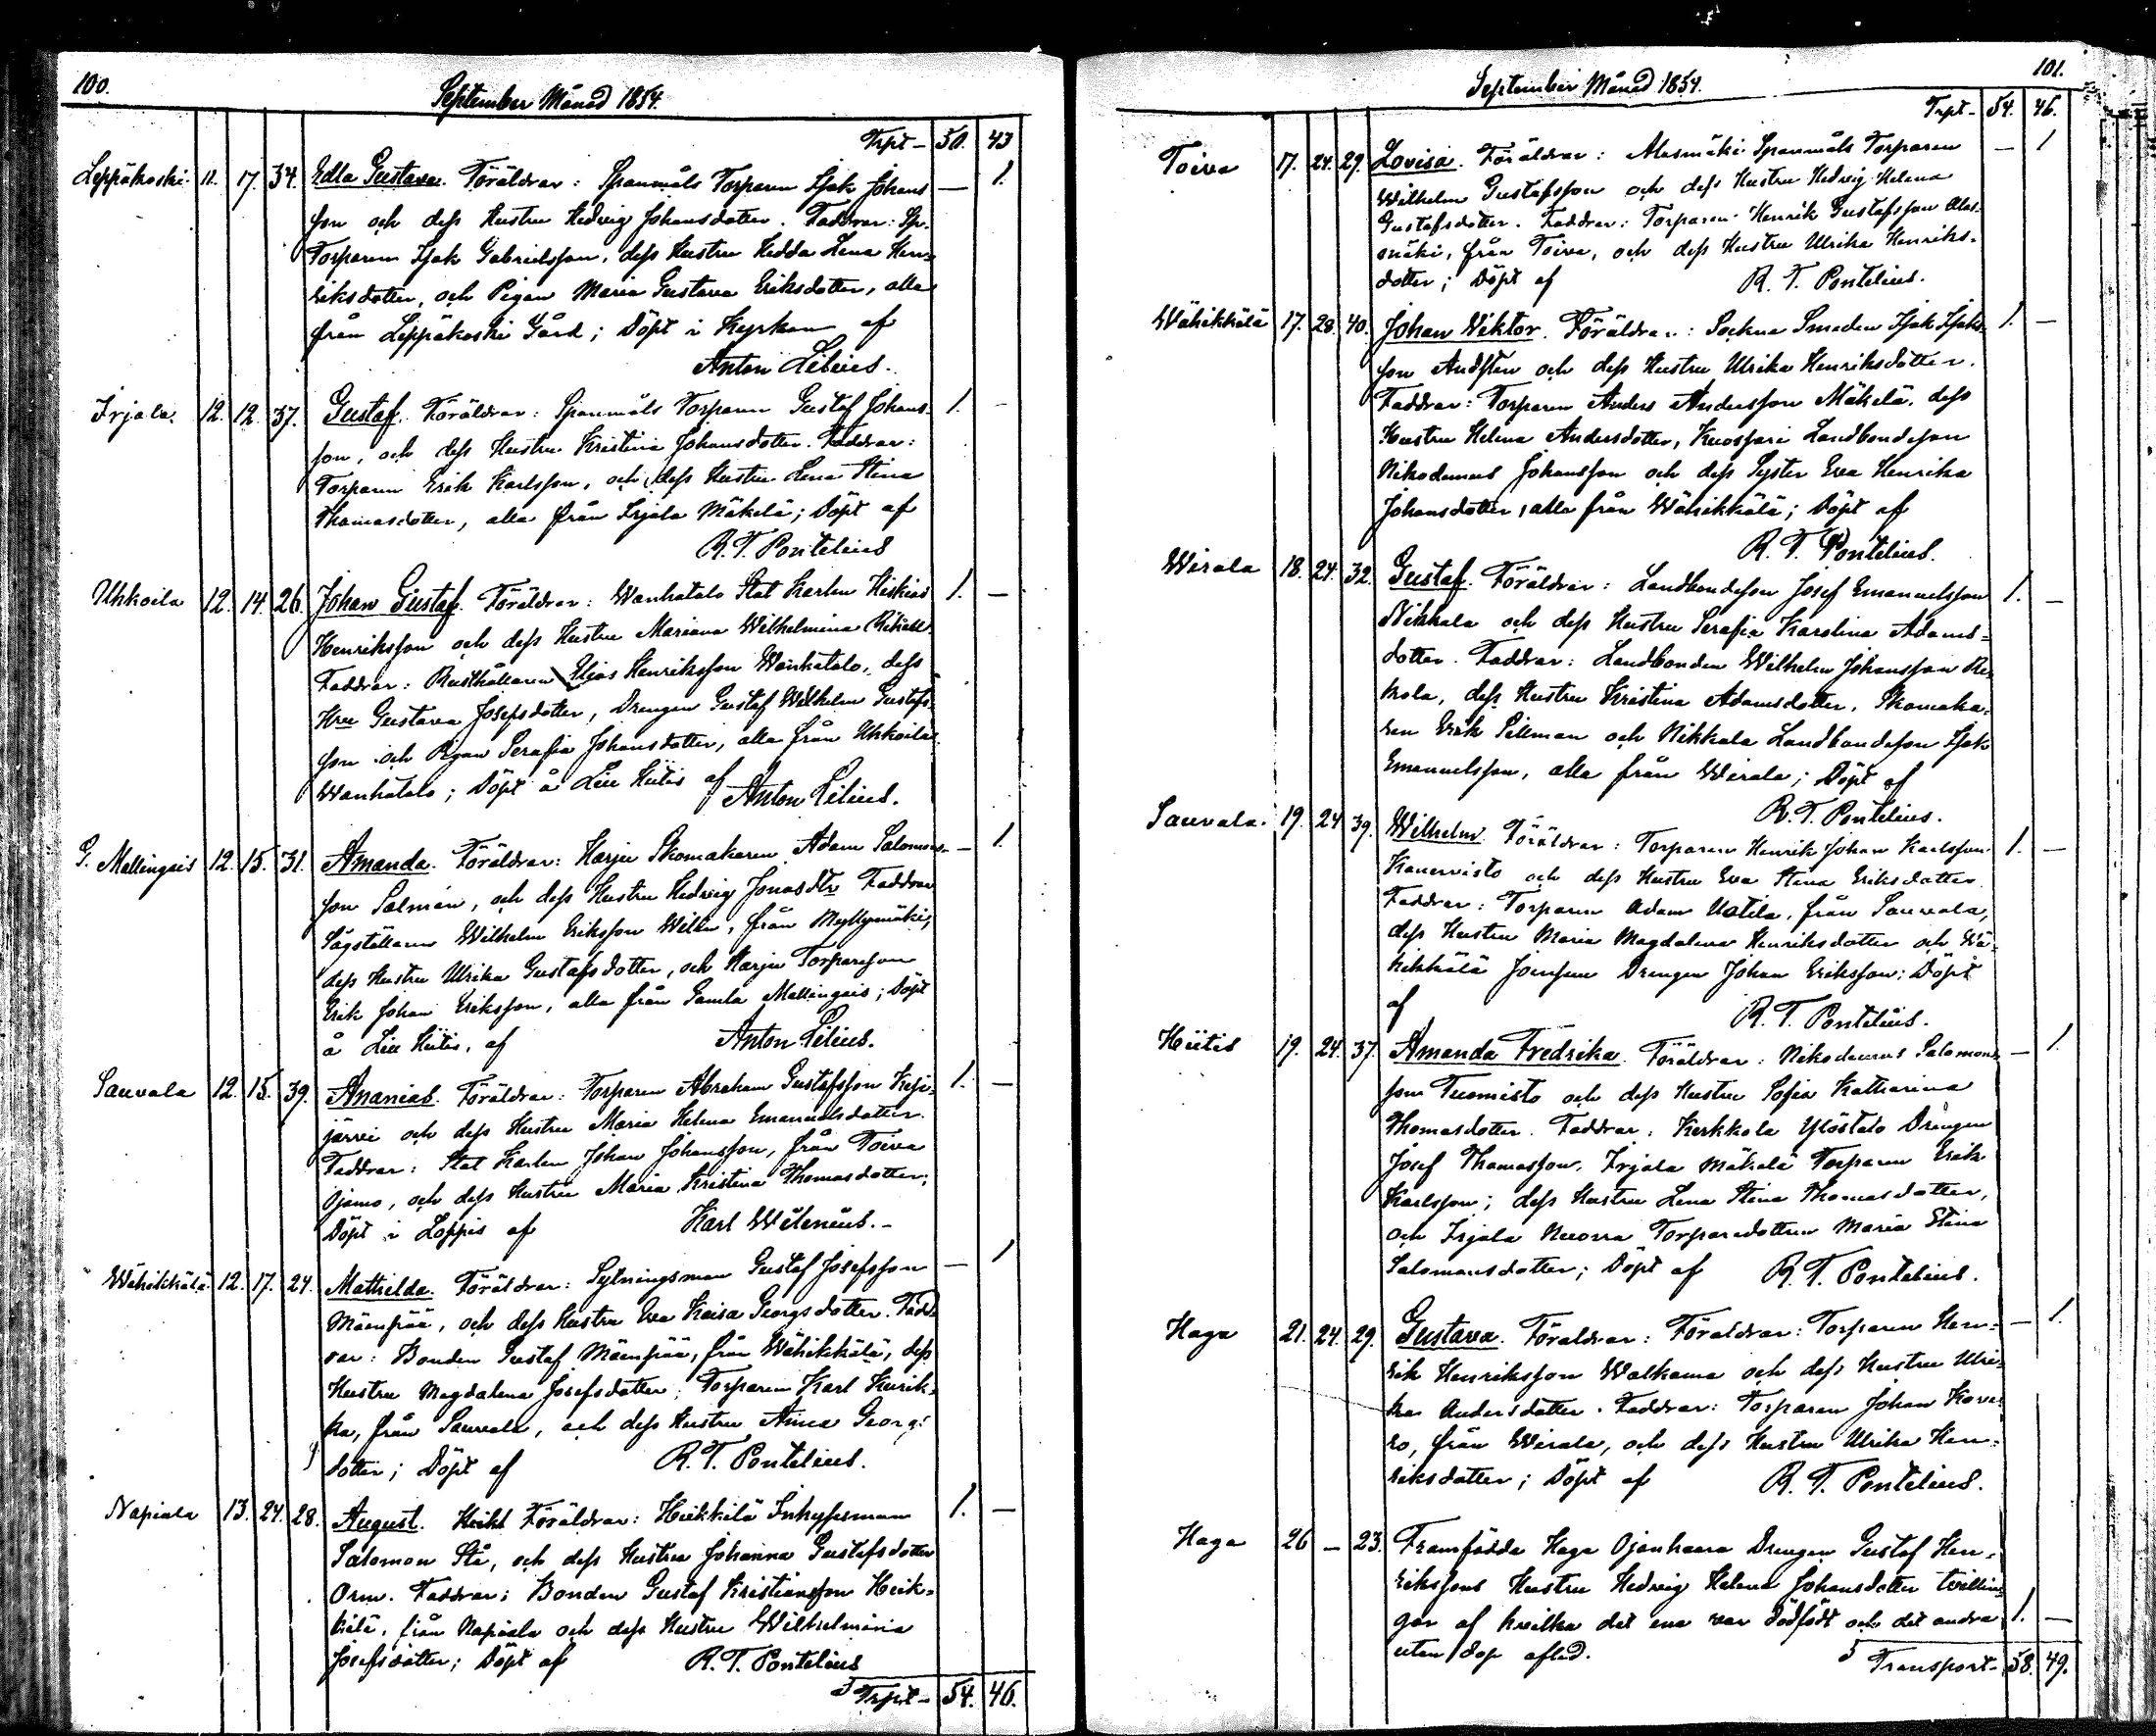 100.
September Månad 1854.
Trpt - 50. 43
Leppäkoski 11. 17. 34. Edla Gustava. Föräldrar: Spanmåls Torparen Isak Johans — 1.
son och dess Hustru Hedvig Johansdotter. Faddrar: Sp.
Torparen Isak Gabrielsson, dess Hustru Hedda Lena Hen=
riksdotter, och Pigan Maria Gustava Eriksdotter, alla
från Leppäkoski Gård; Döpt i Kyrkan af
Anton Lilius.
Irjala. 12. 12. 37. Gustaf. Föräldrar: Spanmåls Torparen Gustaf Johans- 1. —
son, och dess Hustru Kristina Johansdotter. Faddrar:
Torparen Erik Karlsson, och dess Hustru Lena Stina
Thomasdotter, alla från Irjala Mäkelä; Döpt af
R. T. Pontelius
Uhkoila 12. 14. 26. Johan Gustaf. Föräldrar: Wanhatalo Stat Karlen Hiskias 1. —
Henriksson och dess Hustru Mariana Wilhelmina
Faddrar: Rusthållaren Elias Henriksson Wanhatalo, dess
Hru Gustava Josefsdotter, Drengen Gustaf Wilhelm Gustafs-
son och Pigan Serafia Johansdotter, alla från Uhkoila
Wanhatalo; Döpt å Liu Hiitis af Anton Lilius.
G. Mallingais 12. 15. 31. Amanda. Föräldrar: Harju Skomakaren Adam Salomons- — 1.
son Salmén, och dess Hustru Hedvig Jonasdtr Faddrar
Sågställaren Wilhelm Eriksson Willn, från Myllymäki,
dess Hustru Ulrika Gustafsdotter, och Harju Torpareson
Erik Johan Eriksson, alla från Gamla Mallingais; Döpt
å Liu Hiitis, af Anton Lilius.
Sauvala 12. 15. 39. Ananias. Föräldrar: Torparen Abraham Gustafsson Kesi= 1. —
järvi och dess Hustru Maria Helena Emanuelsdotter.
Faddrar: Stat Karlen Johan Johansson, från Toiva
Ojamo, och dess Hustru Maria Kristina Thomasdotter;
Döpt i Loppis af Karl Wilenius.-
Wähikkälä 12. 17. 24. Mathilda. Föräldrar: Sytningsman Gustaf Josefsson — 1
Mäenpää, och dess Hustru Eva Kaisa Georgsdotter. Fadd=
rar: Bonden Gustaf Mäenpää, från Wähikkälä, dess
Hustru Magdalena Josefsdotter, Torparen Karl Kurik=
ka, från Sauvala, och dess Hustru Anna Georgs
dotter; Döpt af R. T. Pontelius.
Napiala 13. 24. 28. August. Föräldrar: Heikkilä Inhysesman 1. —
Salomon Stå, och dess Hustru Johanna Gustafsdotter
Orm. Faddrar: Bonden Gustaf Kristiansson Heik=
kilä, från Napiala och dess Hustru Wilhelmina
Josefsdotter; Döpt af R. T. Pontelius
Trpt - 54. 46.
101.
September Månad 1854.
Trpt - 54. 46.
Toiva 17. 24. 29. Lovisa. Föräldrar: Alasmäki Spanmåls Torparen — 1
Wilhelm Gustafsson och dess Hustru Hedvig Helena
Gustafsdotter. Faddrar: Torparen Henrik Gustafsson Alas-
mäki, från Toiva, och dess Hustru Ulrika Henriks=
dotter; Döpt af R. T. Pontelius.
Wähikkälä 17. 28. 40. Johan Wiktor. Föräldrar: Sockne Smeden Isak Isaks- 1. —
son Andsten och dess Hustru Ulrika Henriksdotter.
Faddrar: Torparen Anders Andersson Mäkelä, dess
Hustru Helena Andersdotter, Landbondeson
Nikodemus Johansson och dess Syster Eva Henrika
Johansdotter, alla från Wähikkälä; Döpt af
R. T. Pontelius.
Wirala 18. 24. 32. Gustaf. Föräldrar: Landbondeson Josef Emanuelsson 1. —
Nikkala och dess Hustru Serafia Karolina Adams=
dotter. Faddrar: Landbonden Wilhelm Johansson Re=
kola, dess Hustru Kristina Adamsdotter, Skomaka=
ren Erik Sillman och Nikkala Landbondeson Isak
Emanuelsson, alla från Wirala; Döpt af
R. T. Pontelius.
Sauvala. 19. 24 39. Wilhelm. Föräldrar: Torparen Henrik Johan Karlsson 1. —
Kanervisto och dess Hustru Eva Stina Eriksdotter.
Faddrar: Torparen Adam Uotila, från Sauvala,
dess Hustru Maria Magdalena Henriksdotter och Wä=
hikkälä Drengen Johan Eriksson; Döpt
af R. T. Pontelius.
Hiitis 19. 24. 37. Amanda Fredrika. Föräldrar: Nikodemus Salomons — 1.
son Tuomisto och dess Hustru Sofia Katharina
Thomasdotter. Faddrar: Kerkkola Ylöstalo Drengen
Josef Thomasson, Irjala Mäkelä Torparen Erik
Karlsson; dess Hustru Lena Stina Thomasdotter,
och Irjala Torparedottren Maria Stina
Salomonsdotter; Döpt af R. T. Pontelius.
Haga 21. 24. 29. Gustava. Föräldrar: Föräldrar: Torparen Hen= — 1.
rik Henriksson Walkama och dess Hustru Ulri=
ka Andersdotter. Faddrar: Torparen Johan Kove=
ro, från Wirala, och dess Hustru Ulrika Hen=
riksdotter; Döpt af R. T. Pontelius.
Haga 26 — 23. Framfödda Haga Ojanhaara Drengen Gustaf Hen=
rikssons Hustru Hedvig Helena Johansdotter tvillin=
gar af hvilka det ena var dödfödt och det andra 1. —
utan dop afled. Transport- 58. 49.